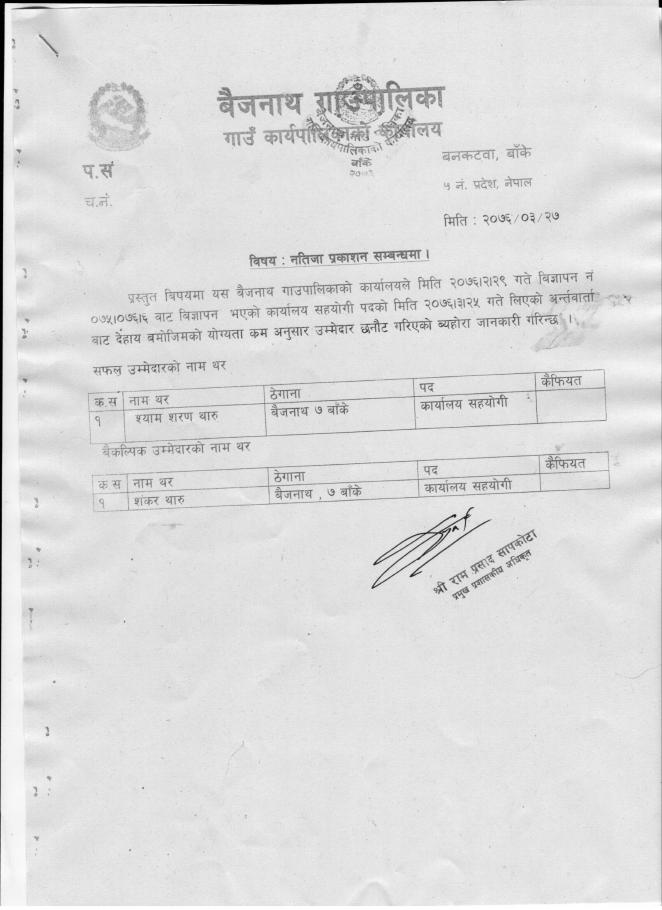 बैजनाथ गाउँपालिका
गाउँ कार्यपालिकाको कार्यालय
बाँके
प.सं
च.नं.
बनकटवा, बाँके
५ नं. प्रदेश, नेपाल
मिति : २०७६/०३/२७
विषय : नतिजा प्रकाशन सम्बन्धमा ।
प्रस्तुत बिषयमा यस बैजनाथ गाउपालिकाको कार्यालयले मिति २०७६।२।२९ गते विज्ञापन नं
०७५।०७६।६ बाट विज्ञापन भएको कार्यालय सहयोगी पदको मिति २०७६।३।२५ गते लिएको अर्न्तवार्ता
वाट देहाय बमोजिमको योग्यता कम अनुसार उम्मेदार छनौट गरिएको ब्यहोरा जानकारी गरिन्छ ।
सफल उम्मेदारको नाम थर
क.स नाम थर ठेगाना पद कैफियत
१ श्याम शरण थारु बैजनाथ ७ बाँके कार्यालय सहयोगी
बैकल्पिक उम्मेदारको नाम थर
क स नाम थर ठेगाना पद कैफियत
१ शंकर थारु बैजनाथ , ७ बाँके कार्यालय सहयोगी
श्री राम प्रसाद सापकोटा
प्रमुख प्रशासकीय अधिकृत